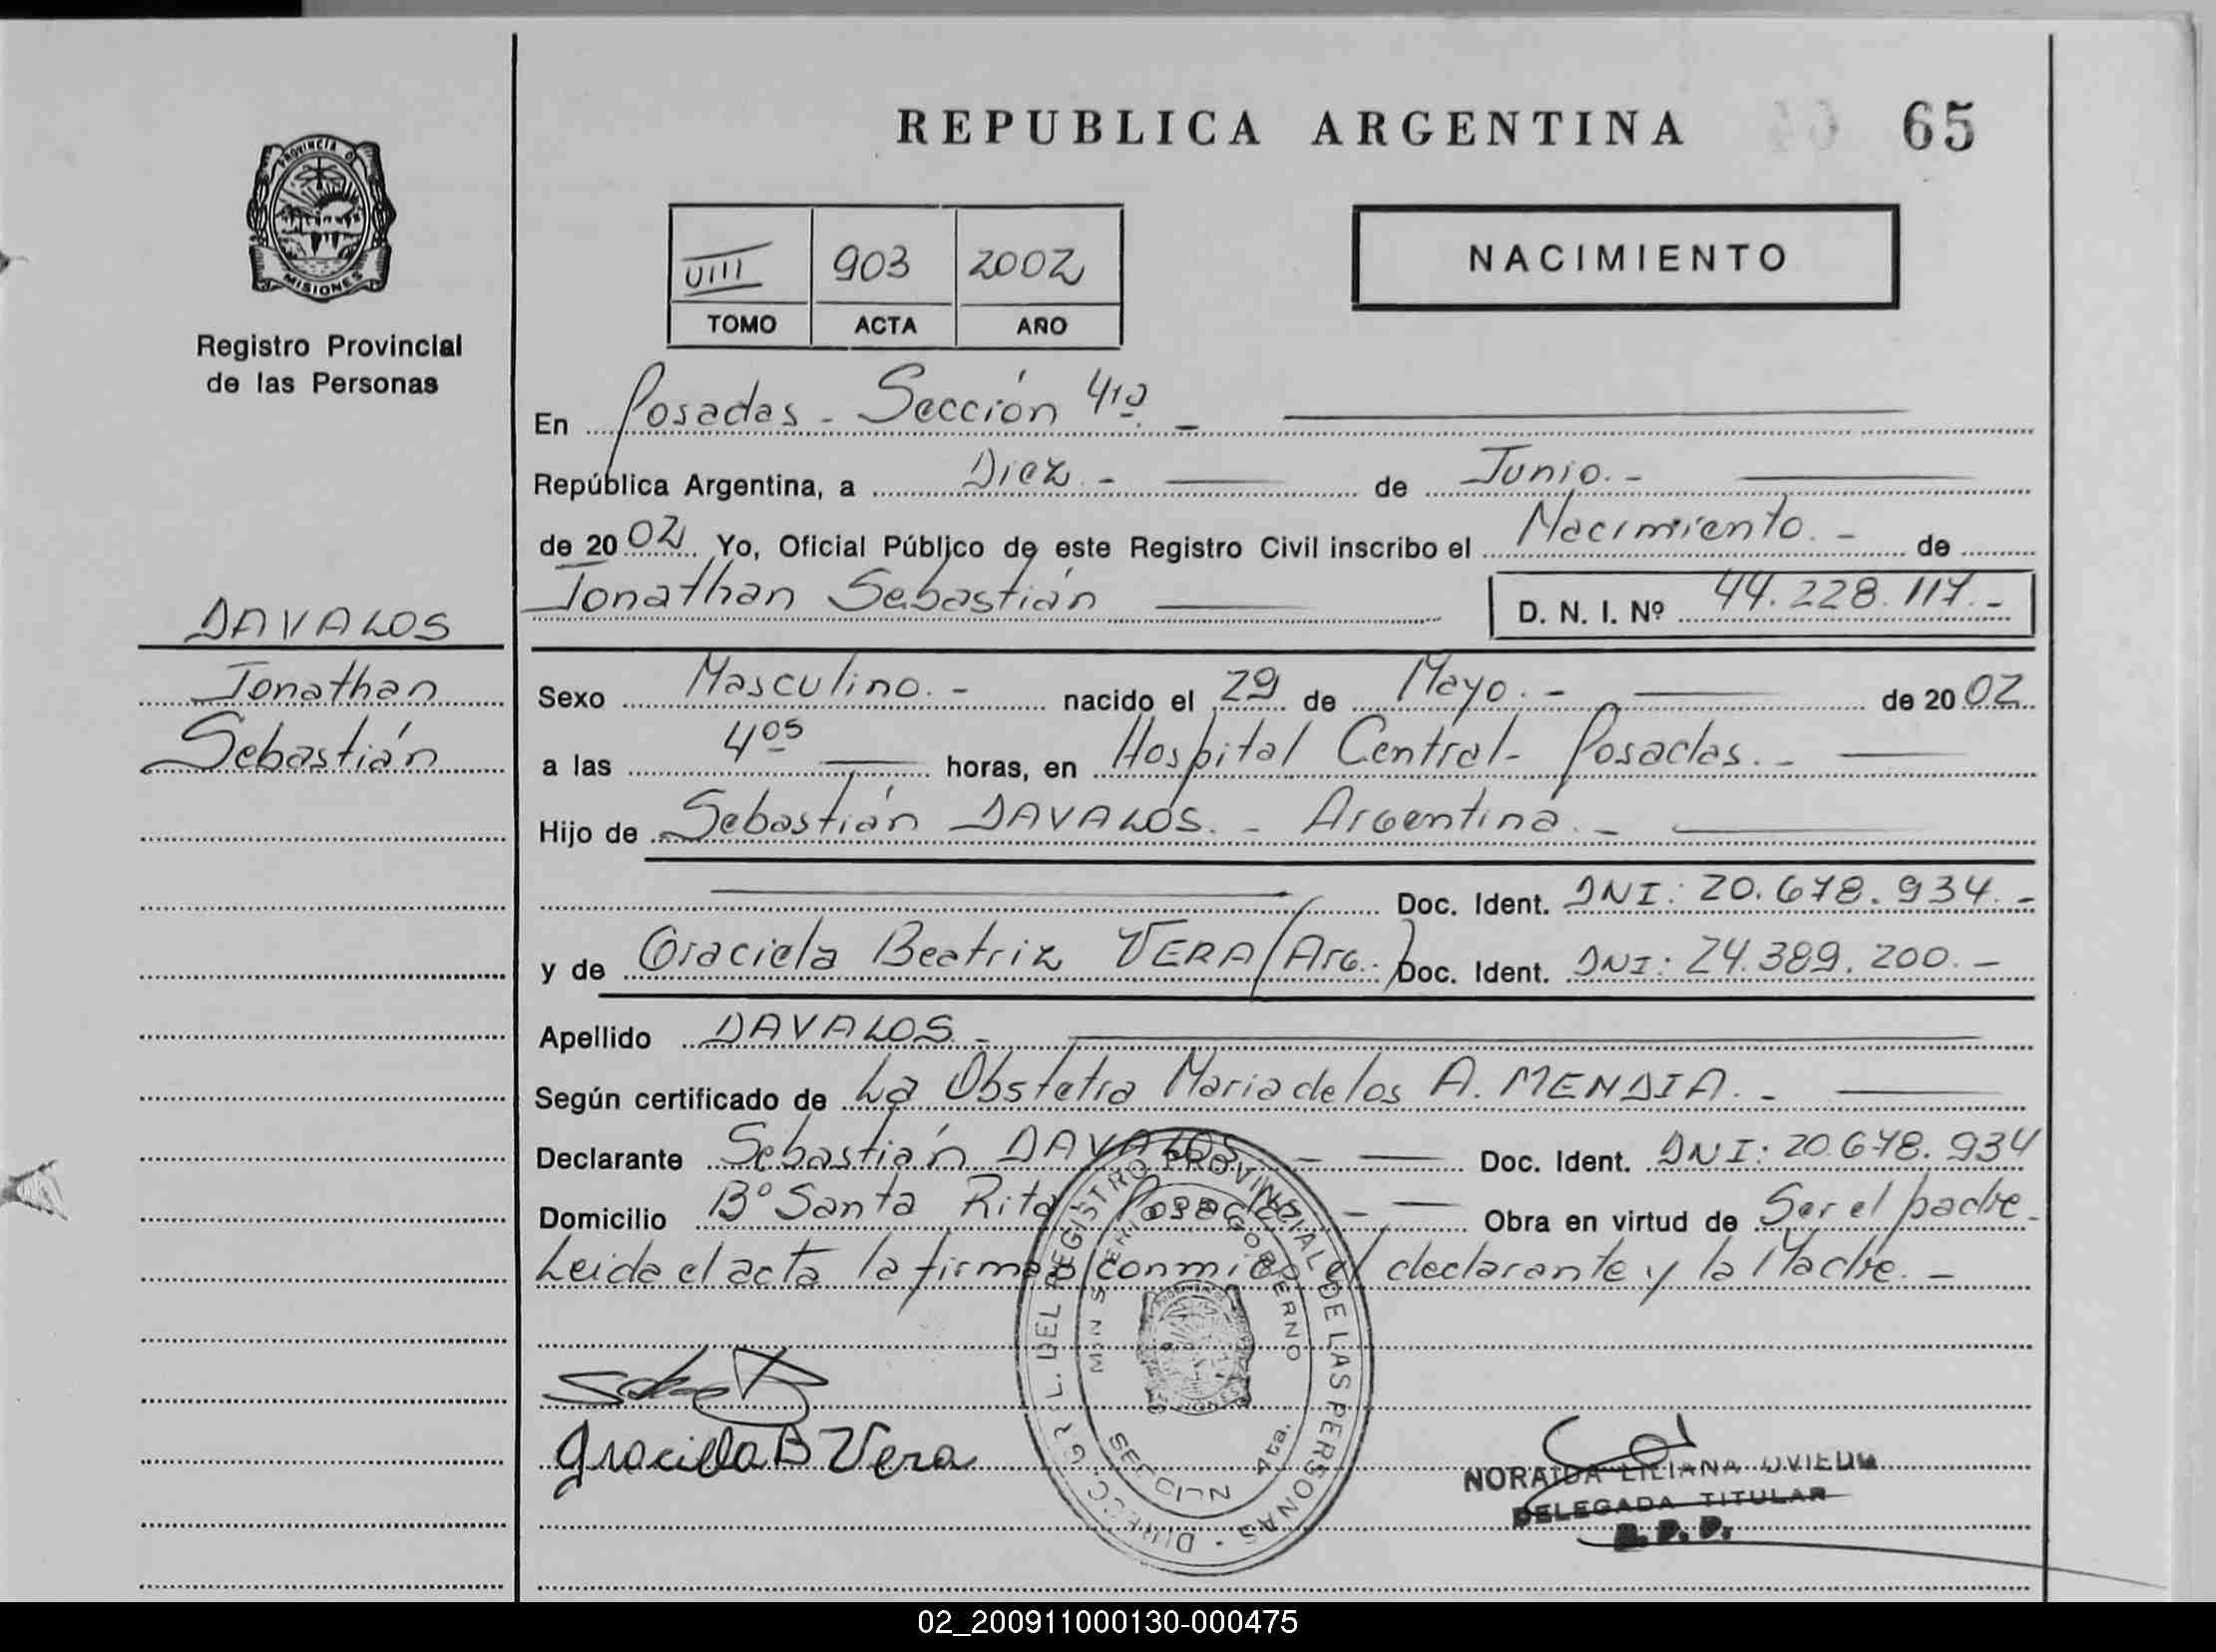 REPUBLICA ARGENTINA 65
PROVINCIA DE
MISIONES
Registro Provincial
de las Personas
VIII 903 2002
TOMO ACTA AÑO
NACIMIENTO
En Posadas - Sección 4ta. -
República Argentina, a Diez. - de Junio. -
de 2002 Yo, Oficial Público de este Registro Civil inscribo el Nacimiento. - de
Jonathan Sebastián D. N. I. Nº 44.228.117. -
DAVALOS
Jonathan
Sebastián
Sexo Masculino. - nacido el 29 de Mayo. - de 2002
a las 4 05 horas, en Hospital Central - Posadas. -
Hijo de Sebastián DAVALOS. - Argentina. -
Doc. Ident. DNI: 20.678.934. -
y de Graciela Beatriz VERA (Arg.-) Doc. Ident. DNI: 24.389.200. -
Apellido DAVALOS. -
Según certificado de La Obstetra Maria de los A. MENDIA. -
Declarante Sebastián DAVALOS - Doc. Ident. DNI: 20.678.934
Domicilio Bº Santa Rita Posadas - Obra en virtud de Ser el padre -
Leida el acta la firman conmigo el declarante y la Madre. -
DIRECC. GRAL. DEL REGISTRO PROVINCIAL DE LAS PERSONAS
GOBIERNO
SECCION 4ta.
Graciela B Vera
NORAIDA LILIANA OVIEDO
DELEGADA TITULAR
R. P. P.
02_200911000130-000475